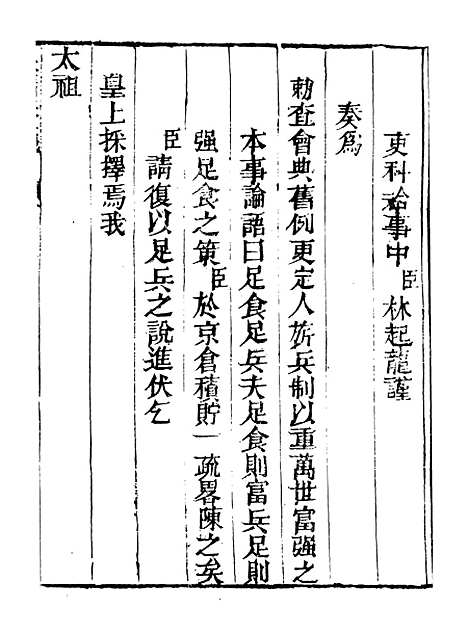 吏科給事中臣林起龍謹
奏爲
勑查會典舊例更定人旂兵制以重萬世富强之
本事論語曰足食足兵夫足食則富兵足則
强足食之策臣於京倉積貯一疏畧陳之矣
臣請復以足兵之說進伏乞
皇上採擇焉我
太祖